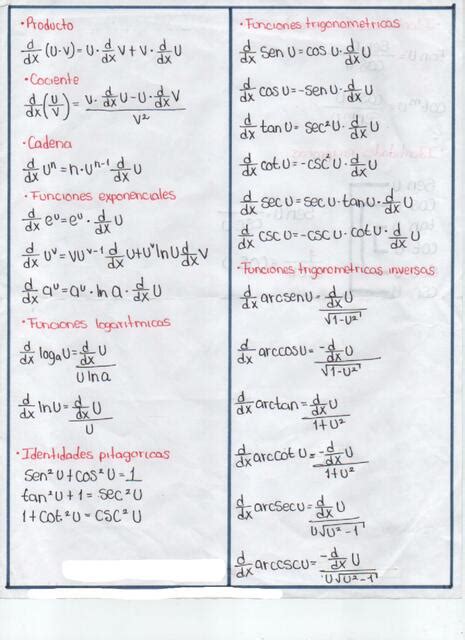 • Producto
d/dx (U·V) = U · d/dx V + V · d/dx U
• Cociente
d/dx (U/V) = (V · d/dx U - U · d/dx V) / V²
• Cadena
d/dx Uⁿ = n · Uⁿ⁻¹ d/dx U
• Funciones exponenciales
d/dx eᵁ = eᵁ · d/dx U
d/dx Uⱽ = VUⱽ⁻¹ d/dx U + Uⱽ ln U d/dx V
d/dx aᵁ = aᵁ · ln a · d/dx U
• Funciones logaritmicas
d/dx logₐ U = (d/dx U) / (U ln a)
d/dx ln U = (d/dx U) / U
• Identidades pitagoricas
sen² U + cos² U = 1
tan² U + 1 = sec² U
1 + cot² U = csc² U
• Funciones trigonometricas
d/dx sen U = cos U · d/dx U
d/dx cos U = -sen U · d/dx U
d/dx tan U = sec² U · d/dx U
d/dx cot U = -csc² U · d/dx U
d/dx sec U = sec U · tan U · d/dx U
d/dx csc U = -csc U · cot U · d/dx U
• Funciones trigonometricas inversas
d/dx arcsen U = (d/dx U) / √(1-U²)
d/dx arccos U = (-d/dx U) / √(1-U²)
d/dx arctan = (d/dx U) / (1+U²)
d/dx arccot U = (-d/dx U) / (1+U²)
d/dx arcsec U = (d/dx U) / (U√(U²-1))
d/dx arccsc U = (-d/dx U) / (U√(U²-1))